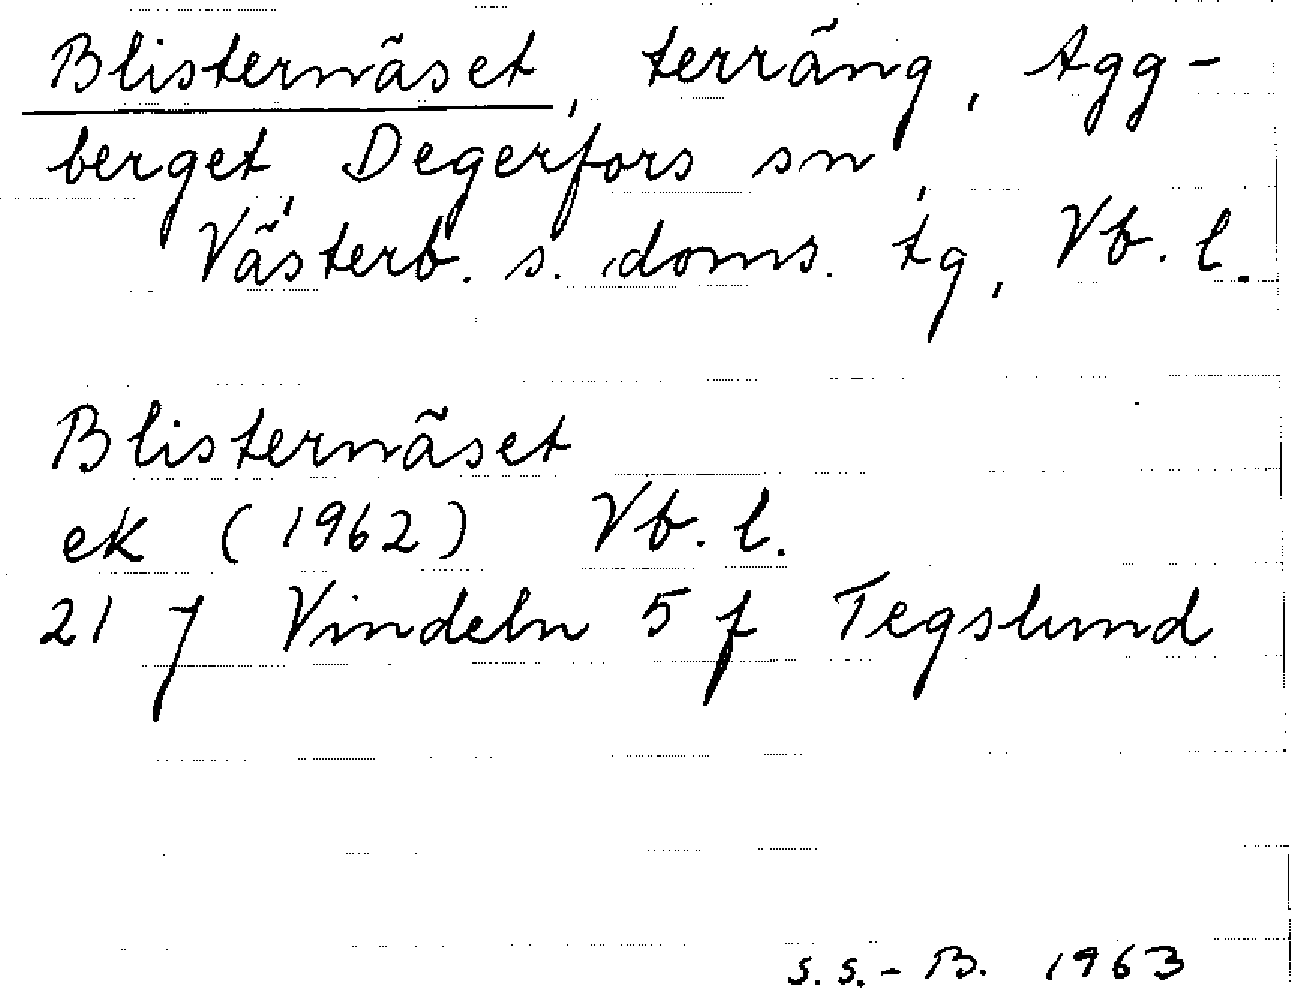 Blisternäset, terräng, Agg-
berget, Degerfors sn,
Västerb. s. doms. tg, Vb. l.
Blisternäset
ek (1962) Vb. l.
21 J Vindeln 5 f Tegslund
S.S.-B. 1963